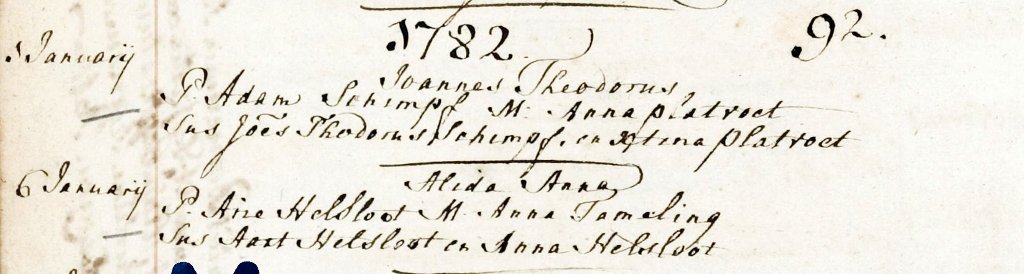 1782. 92.
1 Januarij
Joannes Theodorus
P. Adam Schimpf M. Anna platroet
Sus Joes Thodorus Schimpf. en Xtina platroet
6 Januarij
Alida Anna
P. Arie Helsloot M. Anna Tameling
Sus Aart Helsloot en Anna Helsloot